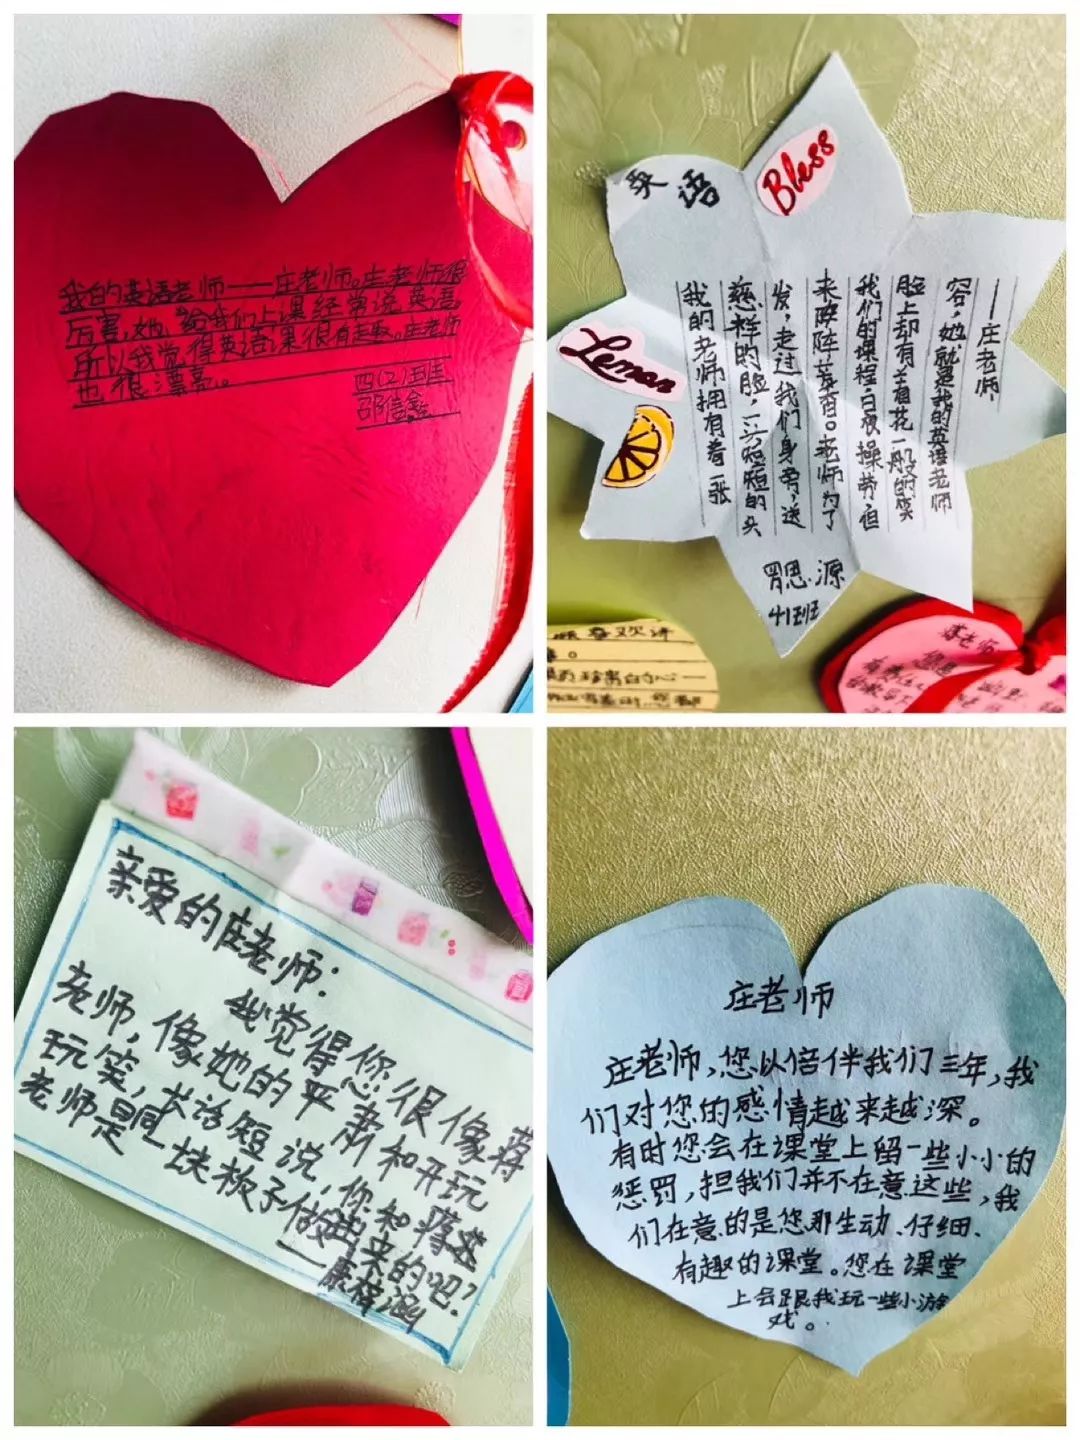 我的英语老师——庄老师。庄老师很
厉害,她,给我们上课经常说英语,
所以我觉得英语课很有趣。庄老师
也很漂亮。
四(2)班
邵信鑫
英语
Bless
Leman
我的老师拥有着一张
慈祥的脸,一头短短的头
发,走过我们身旁,送
来阵阵芳香。老师为了
我们的课程,日夜操劳,但
脸上却有着花一般的笑
容,她就是我的英语老师
——庄老师
思源
41班
喜欢讲
老师
您
亲爱的庄老师:
我觉得您很像蒋
老师,像她的严肃和开玩
玩笑,长话短说,你和蒋老
老师是同一块板子做出来的吧?
——康梓涵
庄老师
庄老师,您以倍伴我们三年,我
们对您的感情越来越深。
有时您会在课堂上留一些小小的
惩罚,担我们并不在意这些,我
们在意的是您那生动、仔细、
有趣的课堂。您在课堂
上会跟我玩一些小游
戏。